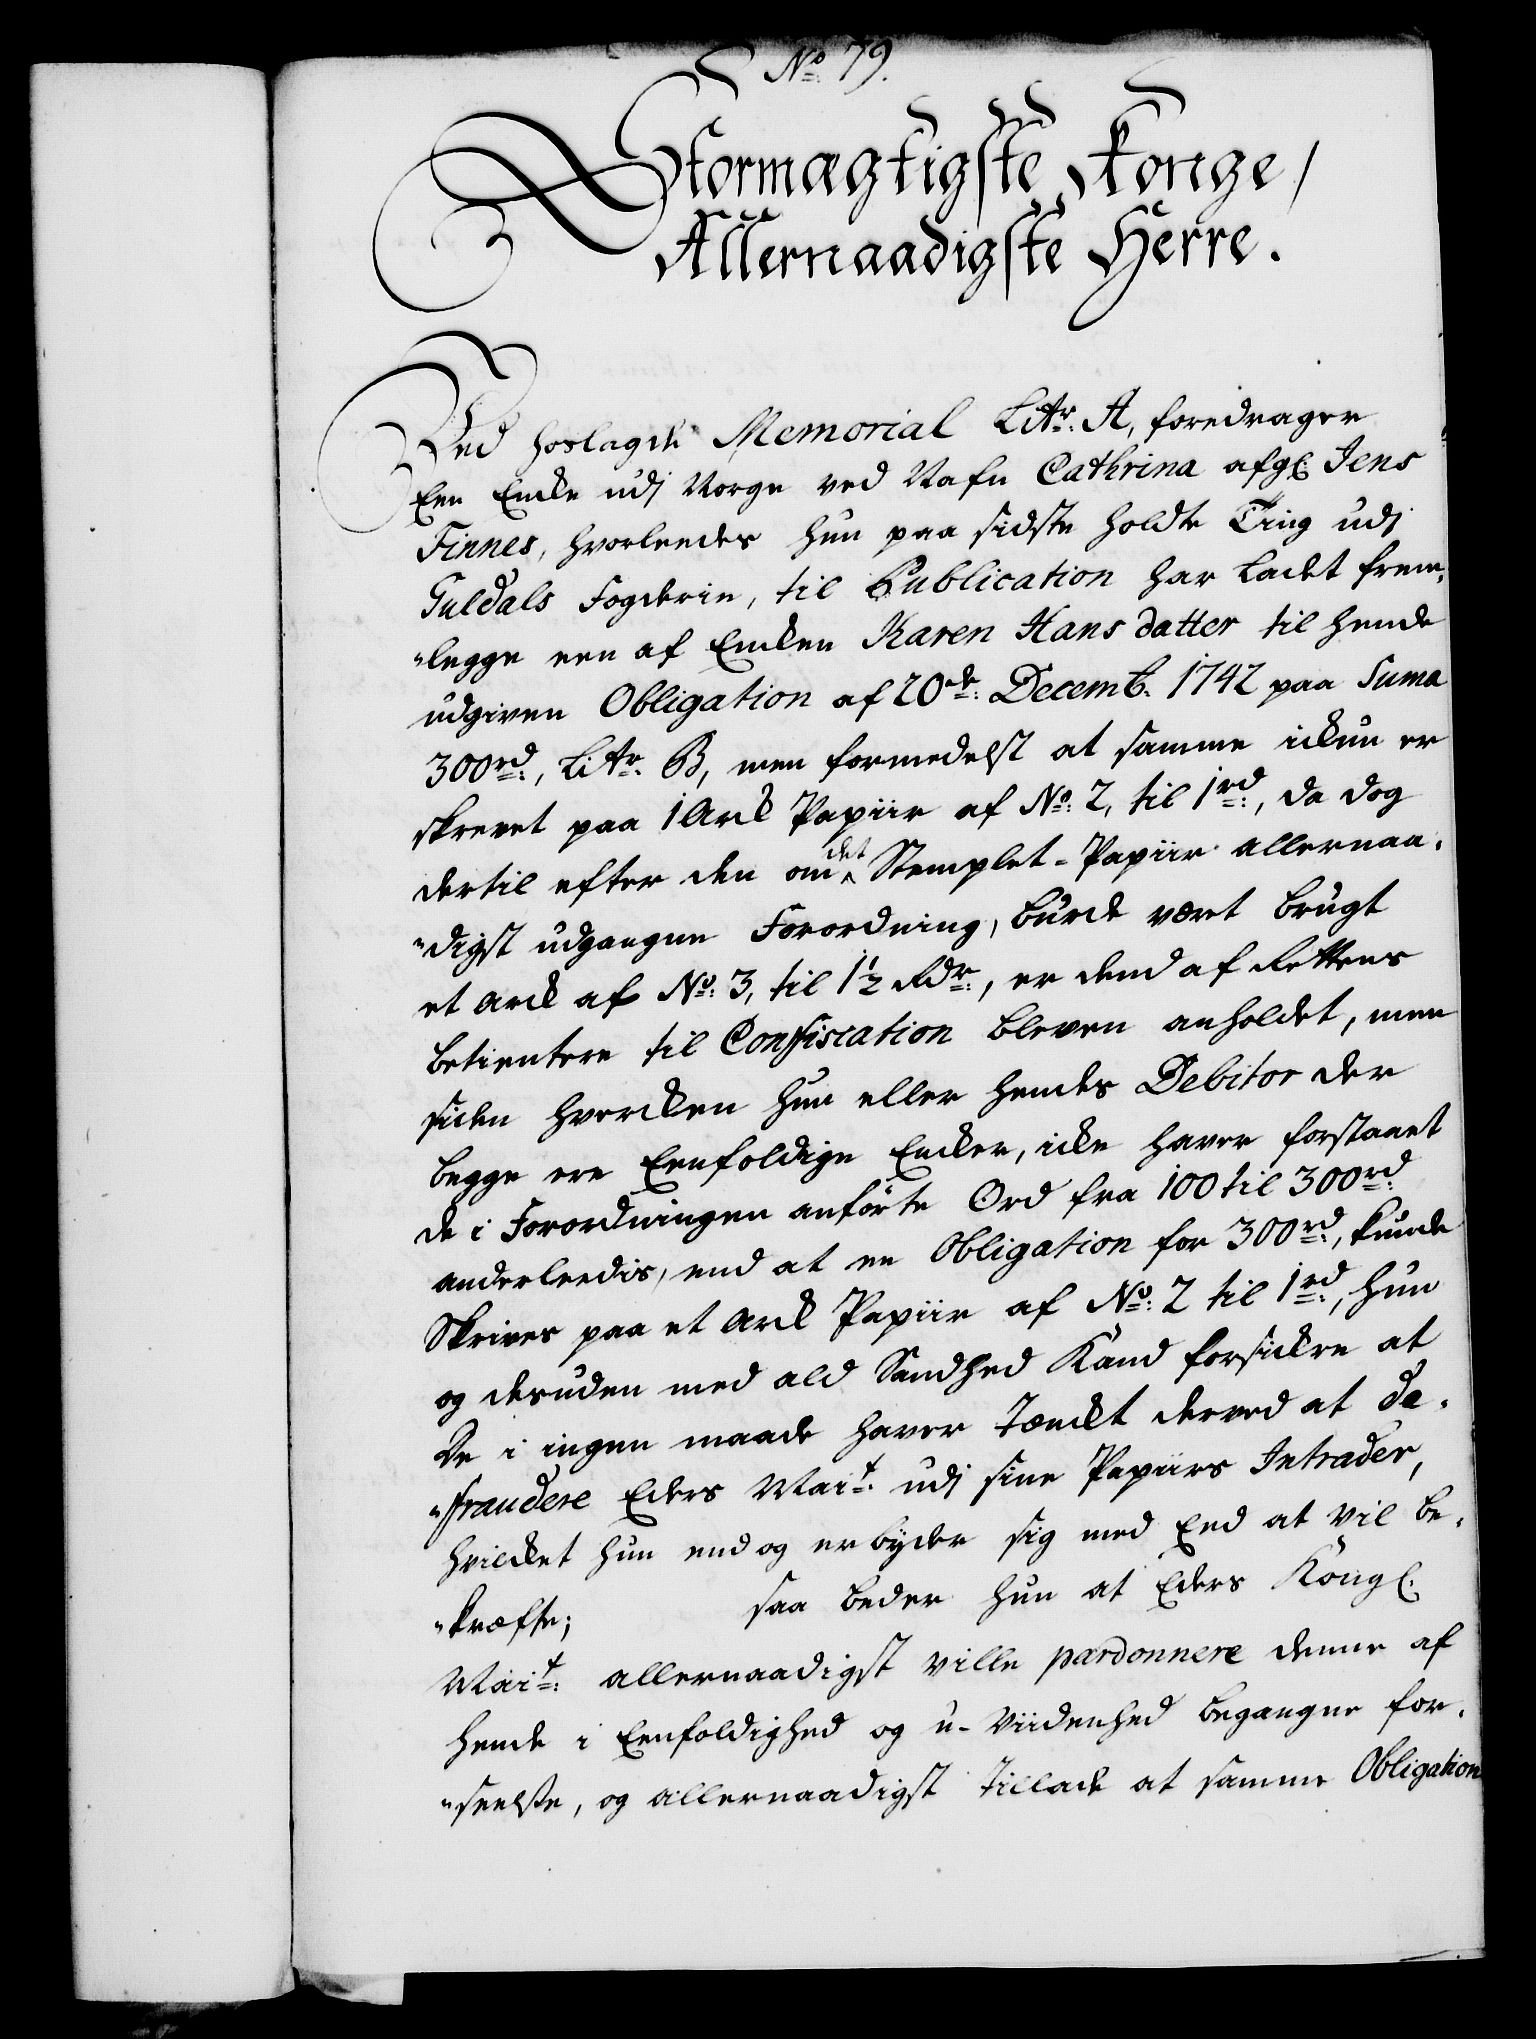 No: 79.
Stormægtigste Konge,
Allernaadigste Herre.
Ved hoslagde Memorial Litr: A, foredrager
Een Encke udj Norge ved Nafn Cathrina afgl: Jens
Finnes, hvorleedes hun paa sidste holdte Ting udj
Guldals Fogderie, til Publication har ladet frem-
"legge een af Encken Karen Hans datter til hende
udgiven Obligation af 20de: Decemb: 1742 paa Suma
300rd:, Litr: B, men formedelst at samme ickun er
skrevet paa 1 Arck Papiir af No: 2, til 1rd:, da dog
dertil efter den om det Stemplet-Papiir allernaa-
"digst udgangne Forordning, burde vært brugt
et Arck af No: 3, til 1½ Rdr:, er dend af Rettens
betientere til Confiscation bleven anholdet, men
siden hvercken hun eller hendes Debitor der
begge ere Eenfoldige Encker, icke haver forstaaet
de i Forordningen anførte Ord fra 100 til 300rd:
anderleedis, end at en Obligation for 300rd:, kunde
Skrives paa et Arck Papiir af No: 2 til 1rd:, hun
og desuden med ald Sandhed Kand forsickre at
De i ingen maade haver Tænckt derved at de-
"fraudere Eders Mait: udj sine Papiirs Intrader,
hvilcket hun end og erbyder sig med Eed at vil be-
"kræfte; saa beder hun at Eders Kongl:
Mait: allernaadigst ville pardonnere denne af
hende i Eenfoldighed og u-Viidenhed begangne for-
"seelse, og allernaadigst Tillade at samme Obligation